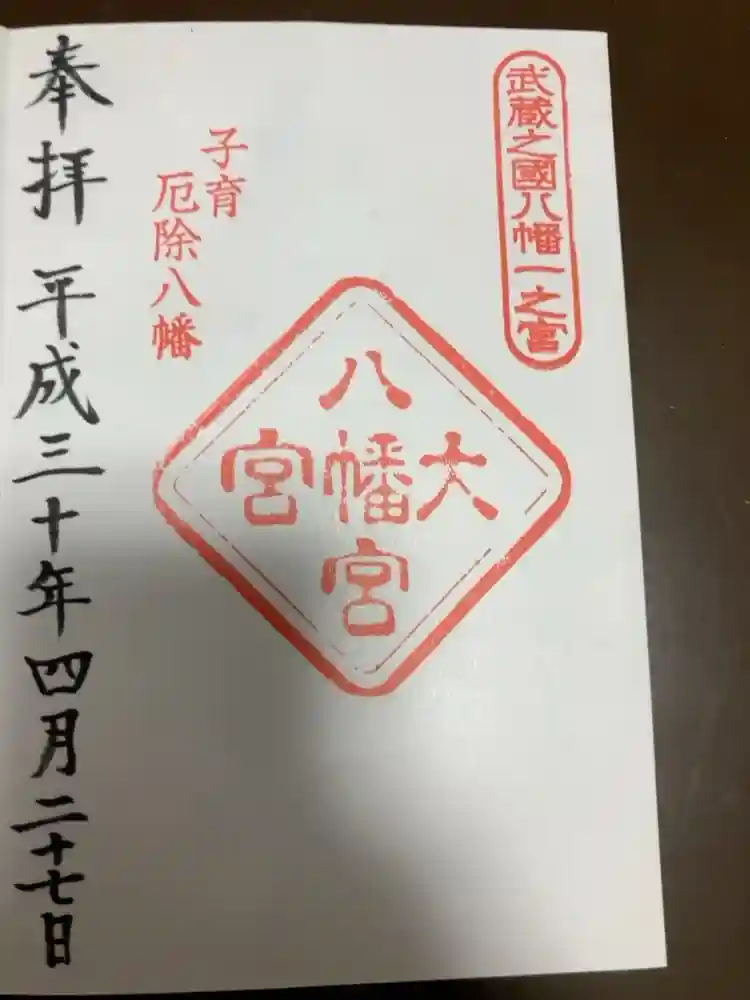 武蔵之國八幡一之宮
大宮
八幡宮
子育
厄除八幡
奉拝 平成三十年四月二十七日